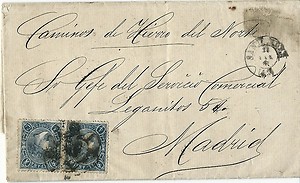 Caminos de Hierro del Norte
Sr Gefe del Servicio Comercial
Leganitos 54
Madrid